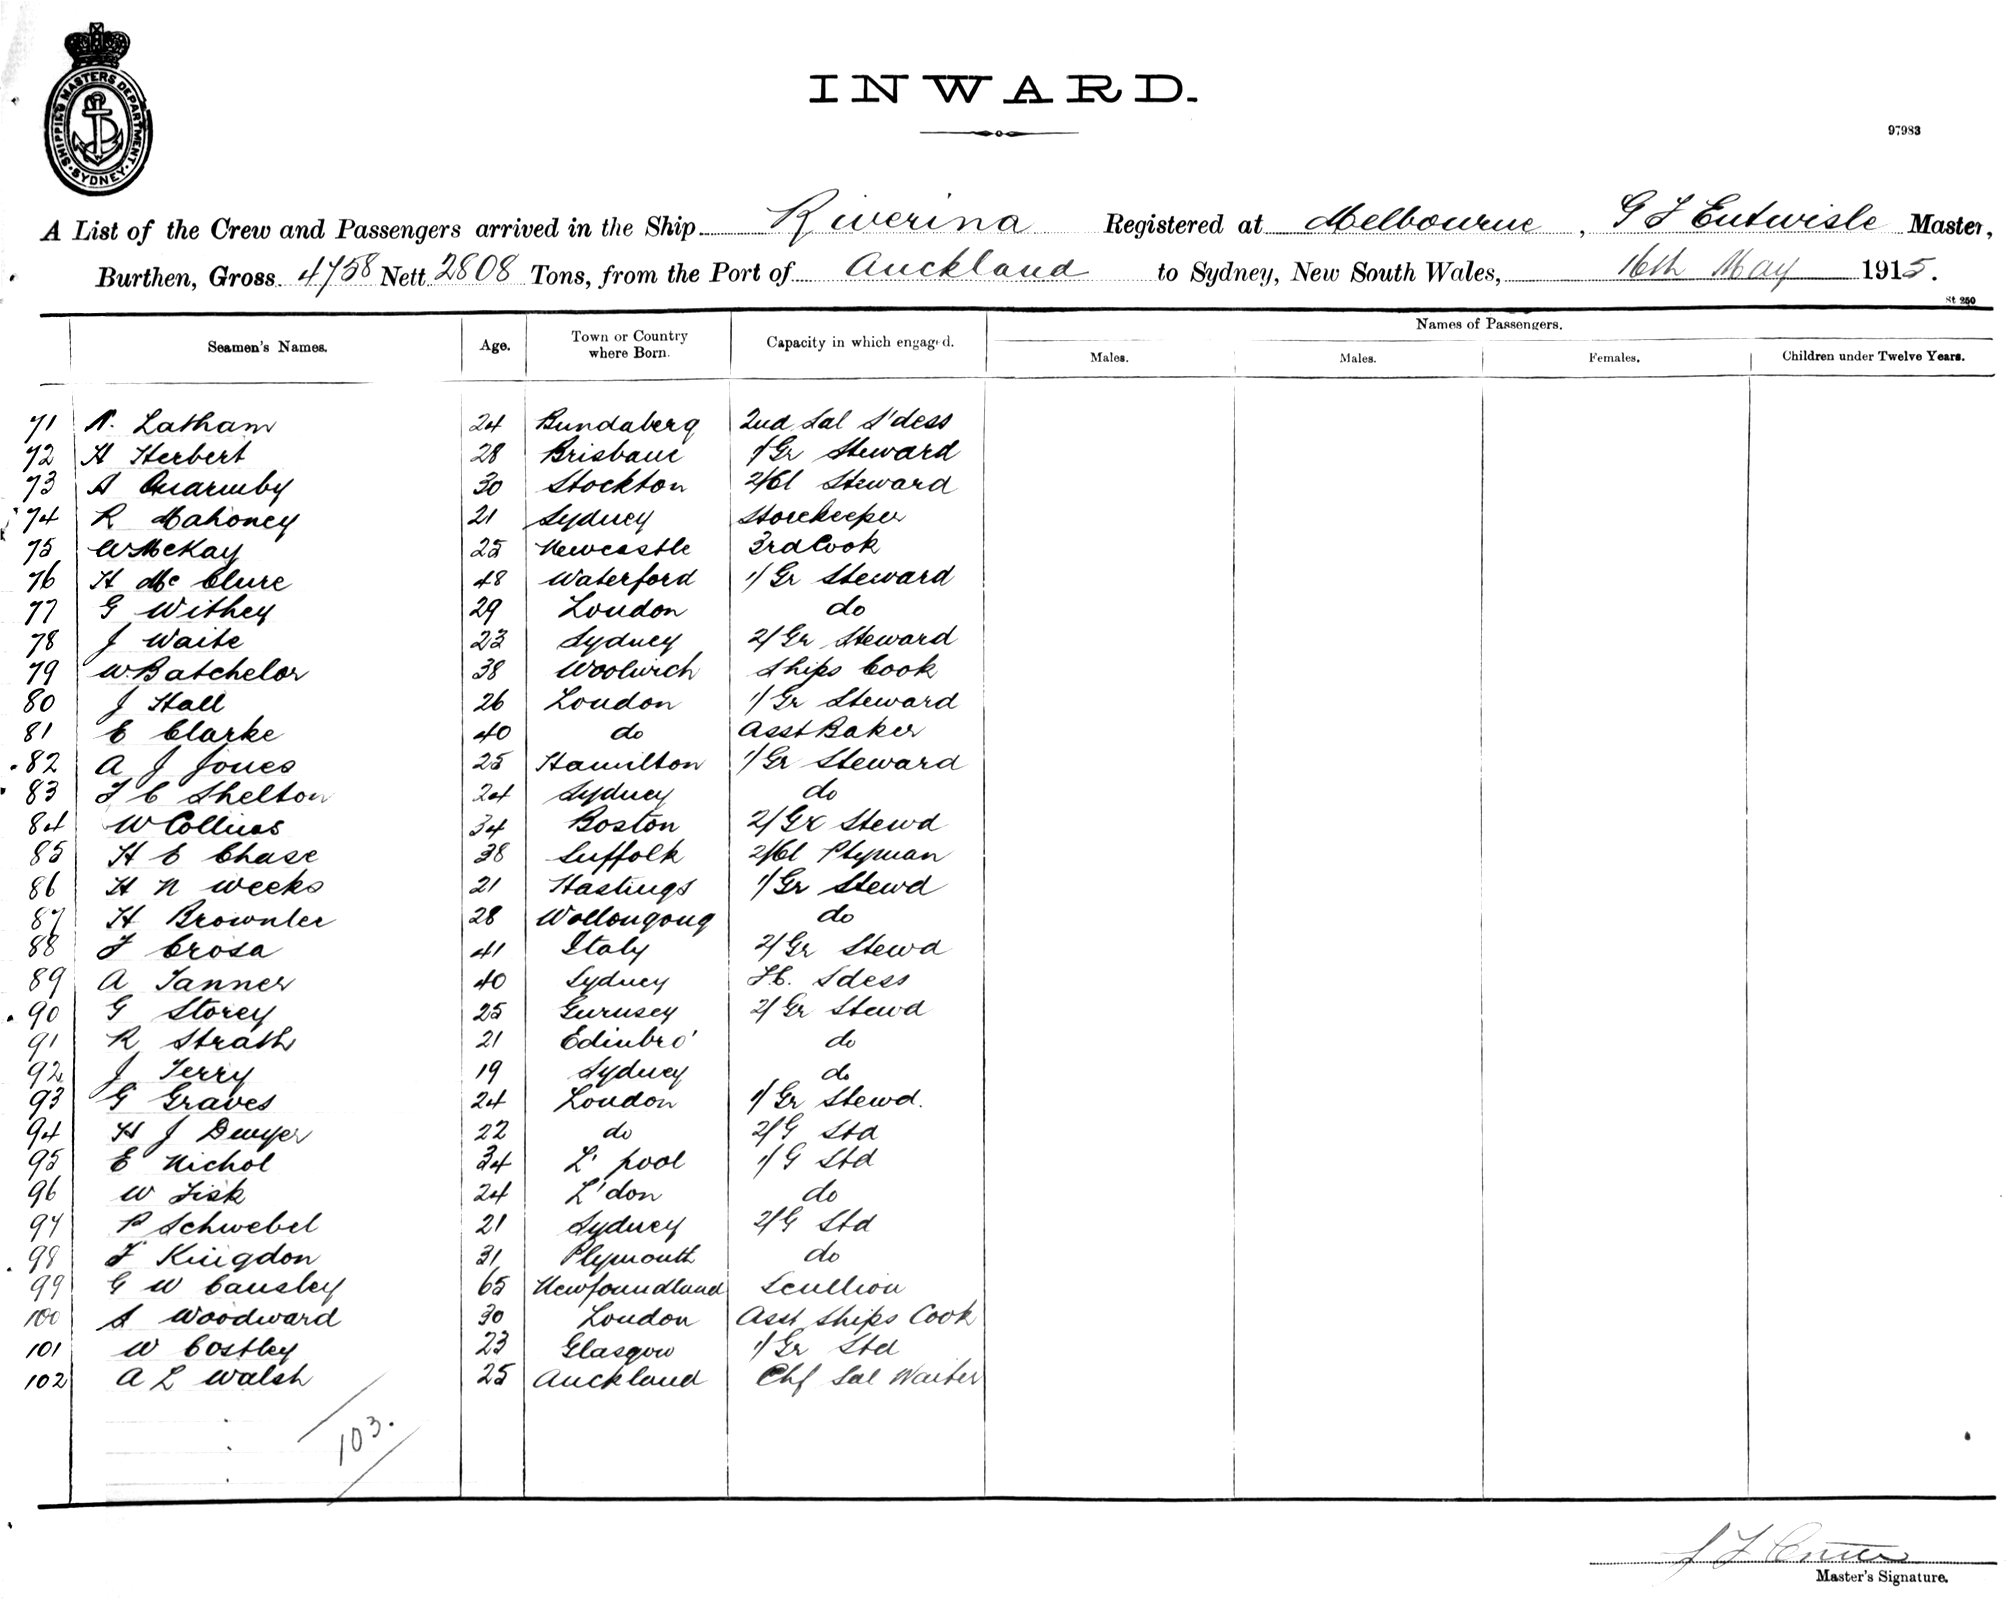 SHIPPING MASTERS DEPARTMENT. SYDNEY.
INWARD.
97983
A List of the Crew and Passengers arrived in the Ship Riverina Registered at Melbourne, G F Entwisle Master,
Burthen, Gross 4758 Nett 2808 Tons, from the Port of Auckland to Sydney, New South Wales, 16th May 1915.
St 250
Seamen's Names. Age. Town or Country where Born. Capacity in which engaged. Names of Passengers.
Males. Males. Females. Children under Twelve Years.
71 N. Latham 24 Bundaberg 2nd Sal S'dess
72 H Herbert 28 Brisbane 1/Gr Steward
73 A Quarmby 30 Stockton 2/Cl Steward
74 R Mahoney 21 Sydney Storekeeper
75 W McKay 25 Newcastle 3rd Cook
76 H Mc Clure 48 Waterford 1/Gr Steward
77 G Withey 29 London do
78 J Waite 23 Sydney 2/Gr Steward
79 W. Batchelor 38 Woolwich Ships Cook
80 J Hall 26 London 1/Gr Steward
81 C Clarke 40 do Asst Baker
82 A J Jones 25 Hamilton 1/Gr Steward
83 F C Shelton 24 Sydney do
84 W Collins 34 Boston 2/Gr Stewd
85 H C Chase 38 Suffolk 2/Cl Ptyman
86 H N Weeks 21 Hastings 1/Gr Stewd
87 H Brownler 28 Wollongong do
88 F Crosa 41 Italy 2/Gr Stewd
89 A Tanner 40 Sydney F.C. Sdess
90 G Storey 25 Gurnsey 2/Gr Stewd
91 R Strath 21 Edinbro' do
92 J Terry 19 Sydney do
93 G Graves 24 London 1/Gr Stewd.
94 H J Dwyer 22 do 2/G Std
95 E Nichol 34 L'pool 1/G Std
96 W Fisk 24 L'don do
97 P Schwebel 21 Sydney 2/G Std
98 F Kingdon 31 Plymouth do
99 G W Causley 65 Newfoundland Scullion
100 A Woodward 30 London Asst Ships Cook
101 W Costley 23 Glasgow 1/Gr Std
102 A L Walsh 25 Auckland Chf Sal Waiter
103.
Master's Signature.